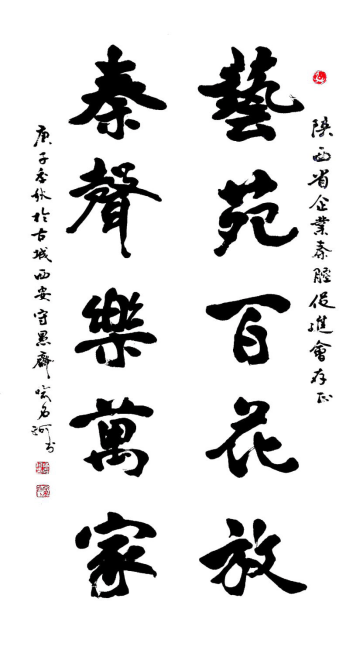 陝西省企業秦腔促進會存正
藝苑百花放
秦聲樂萬家
庚子季秋於古城西安守愚齋